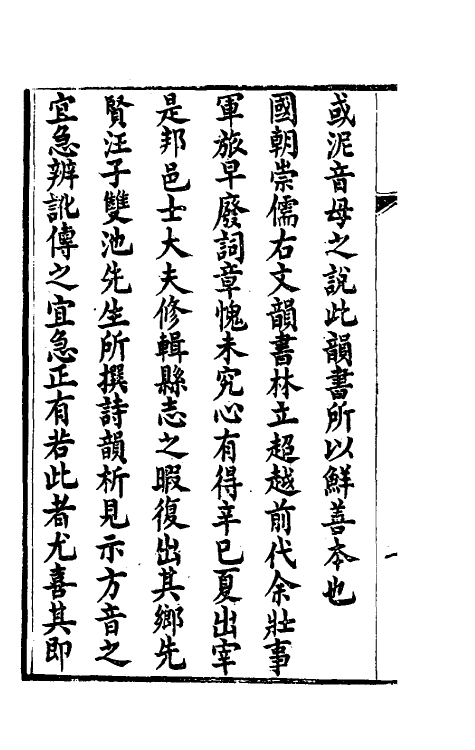 或泥音母之說此韻書所以鮮善本也
國朝崇儒右文韻書林立超越前代余壯事
軍旅早廢詞章愧未究心有得辛巳夏出宰
是邦邑士大夫修輯縣志之暇復出其鄉先
賢汪子雙池先生所撰詩韻析見示方音之
宜急辨訛傳之宜急正有若此者尤喜其即